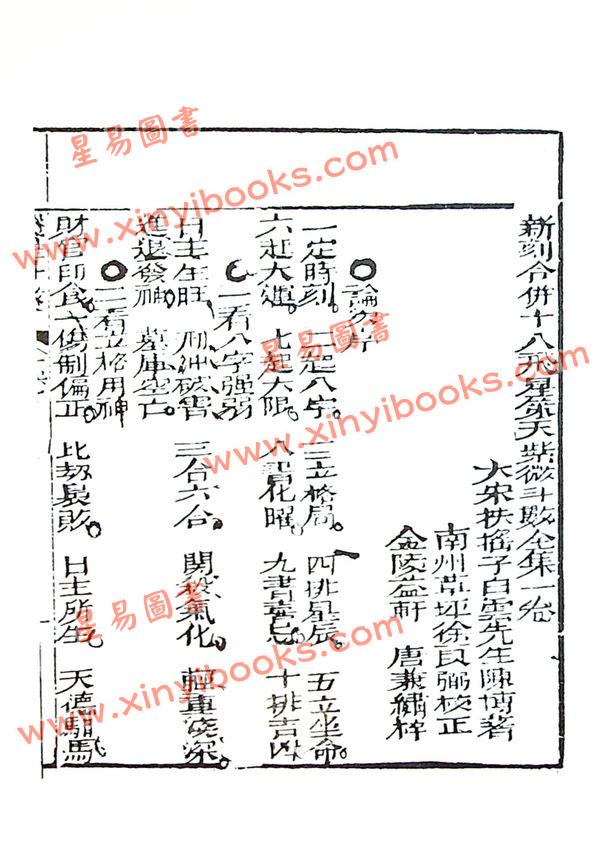 新刻合併十八飛星策天紫微斗數全集一卷
大宋扶搖子白雲先生陳摶著
南州草坪徐良弼校正
金陵益軒 唐兼繡梓
論分
一定時刻 二起八字 三立格局 四排星辰 五立坐命
六起大運 七起大限 八 花曜 九書喜忌 十排吉凶
一看八字強弱
日主生旺 刑沖破害 三合六合 氣化 輕重淺深
進退發神 墓庫空亡
二看立格用神
財官印食 傷制偏正 比劫衰敗 日主所生 天德馹馬
星易圖書
www.xinyibooks.com
www.xinyibooks.com
www.xinyibooks.com
星易圖書
www.xinyibooks.com